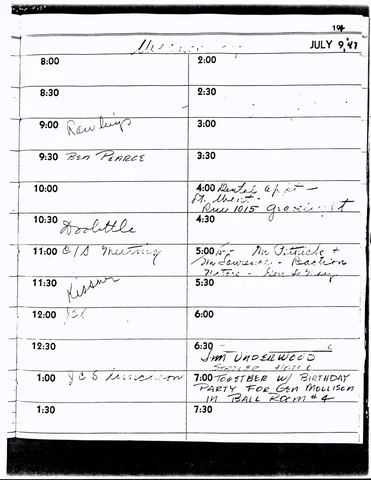 194
JULY 9, 47
8:00
8:30
9:00 Rawlings
9:30 BEN PEARCE
10:00
10:30 Doolittle
11:00 C/S Meeting
11:30 Kissner
12:00
12:30
1:00 JCS luncheon
1:30
2:00
2:30
3:00
3:30
4:00 Dental apt —
Rm 1015
4:30
5:00 Mr. &
Mr Lawrence -
5:30
6:00
6:30
JIM UNDERWOOD
STATLER HOTEL
7:00 TOGETHER W/ BIRTHDAY
PARTY FOR GEN MOLLISON
IN BALL ROOM #4
7:30